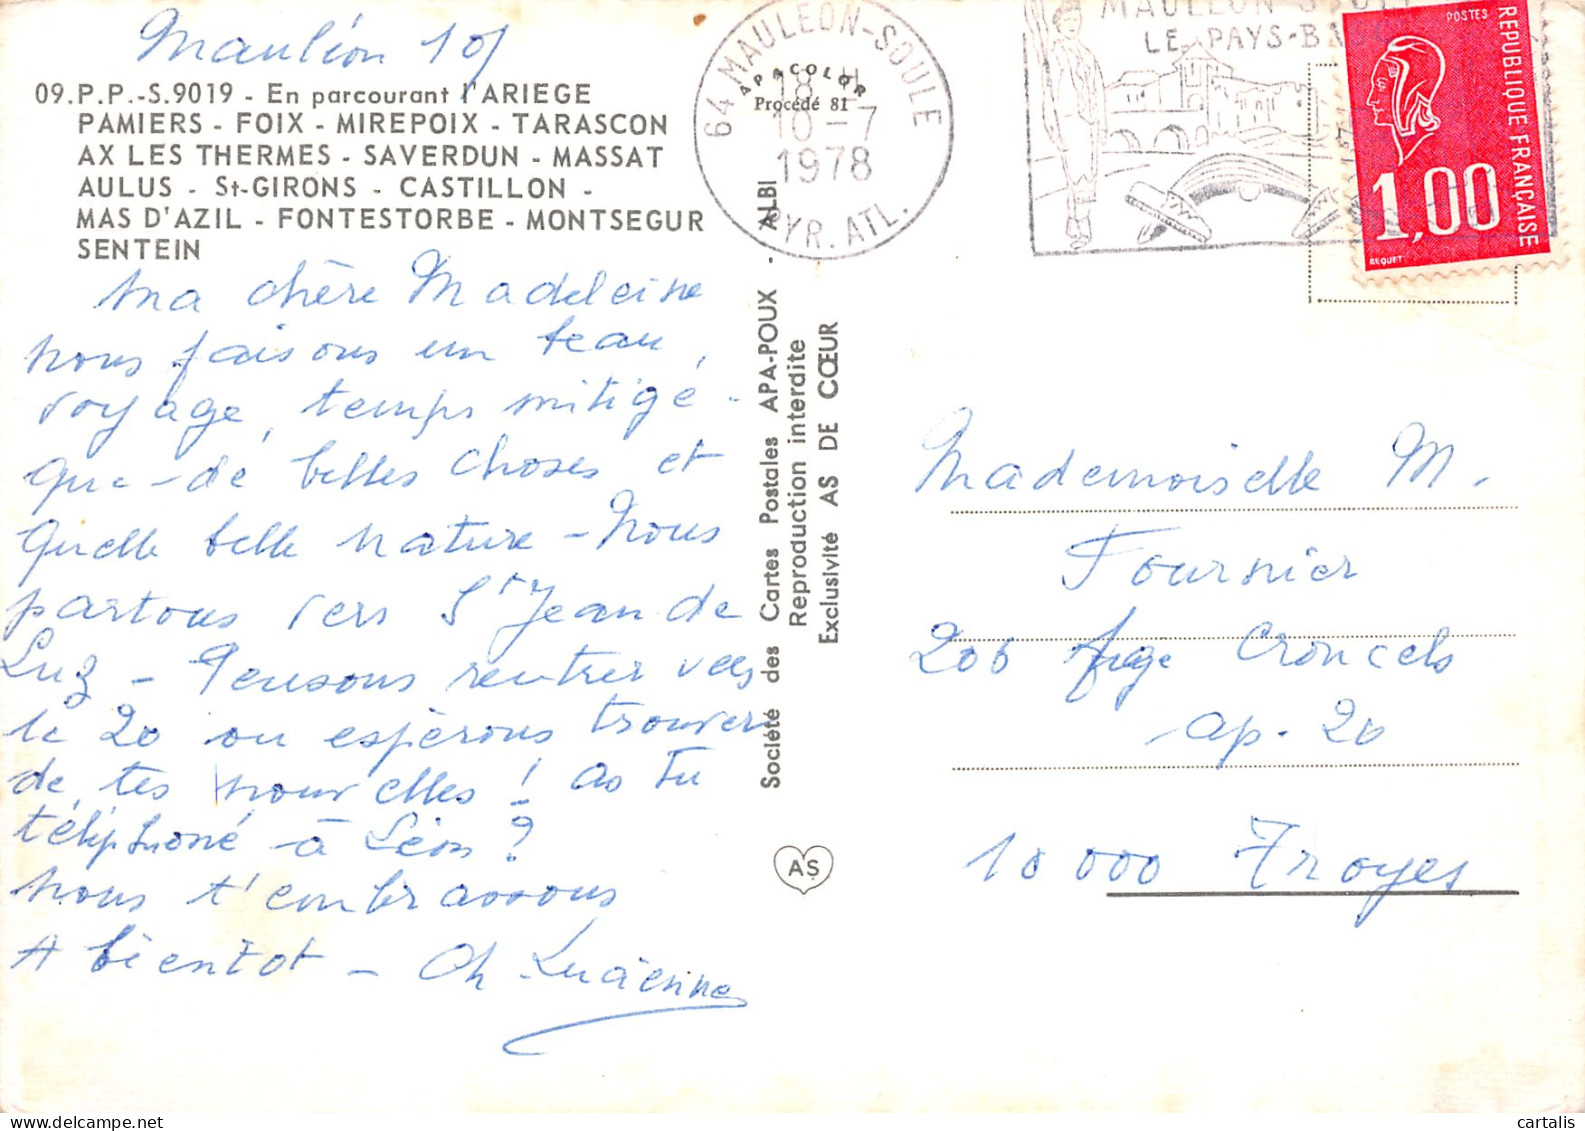 Mauléon 10/
09.P.P.-S.9019 - En parcourant l'ARIEGE
PAMIERS - FOIX - MIREPOIX - TARASCON
AX LES THERMES - SAVERDUN - MASSAT
AULUS - St-GIRONS - CASTILLON -
MAS D'AZIL - FONTESTORBE - MONTSEGUR
SENTEIN
Ma chère Madeleine
nous faisons un beau
voyage, temps mitigé -
que de belles choses et
quelle belle nature - Nous
partons vers St Jean de
Luz - Pensons rentrer vers
le 20 ou espérons trouver
de tes nouvelles ! as tu
téléphoné à Léon ?
nous t'embrassons
A bientot - Ch Lucienne
APACOLOR
Procédé 81
Société des Cartes Postales APA-POUX - ALBI
Reproduction interdite
Exclusivité AS DE CŒUR
AS
64 MAULEON-SOULE
18 H
10 -7
1978
PYR. ATL.
MAULEON SOULE
LE PAYS-BASQUE
POSTES
REPUBLIQUE FRANÇAISE
1,00
BEQUET
Mademoiselle M.
Fournier
206 Croncels
ap. 20
10 000 Troyes
cartalis